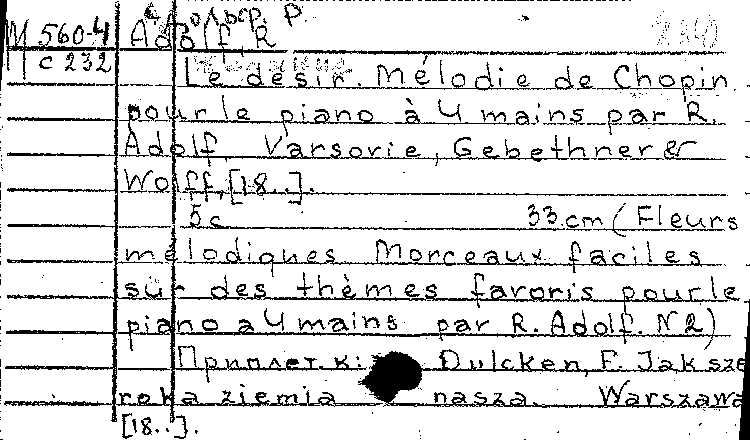 Адольф, Р.
М 560-4 Adolf, R
с 232
Le désir. Mélodie de Chopin
pour le piano à 4 mains par R.
Adolf. Varsovie, Gebethner &
Wolff, [18..].
5 c 33 cm (Fleurs
mélodiques Morceaux faciles
sur des thèmes favoris pour le
piano a 4 mains par R. Adolf. N 2)
Приплет. к: Dulcken, F. Jak sze
roka ziemia nasza. Warszawa
[18..].